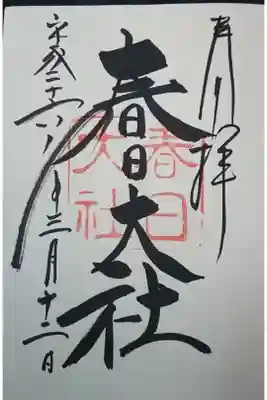 奉拝
春日大社
春日大社
平成二十六年三月十二日